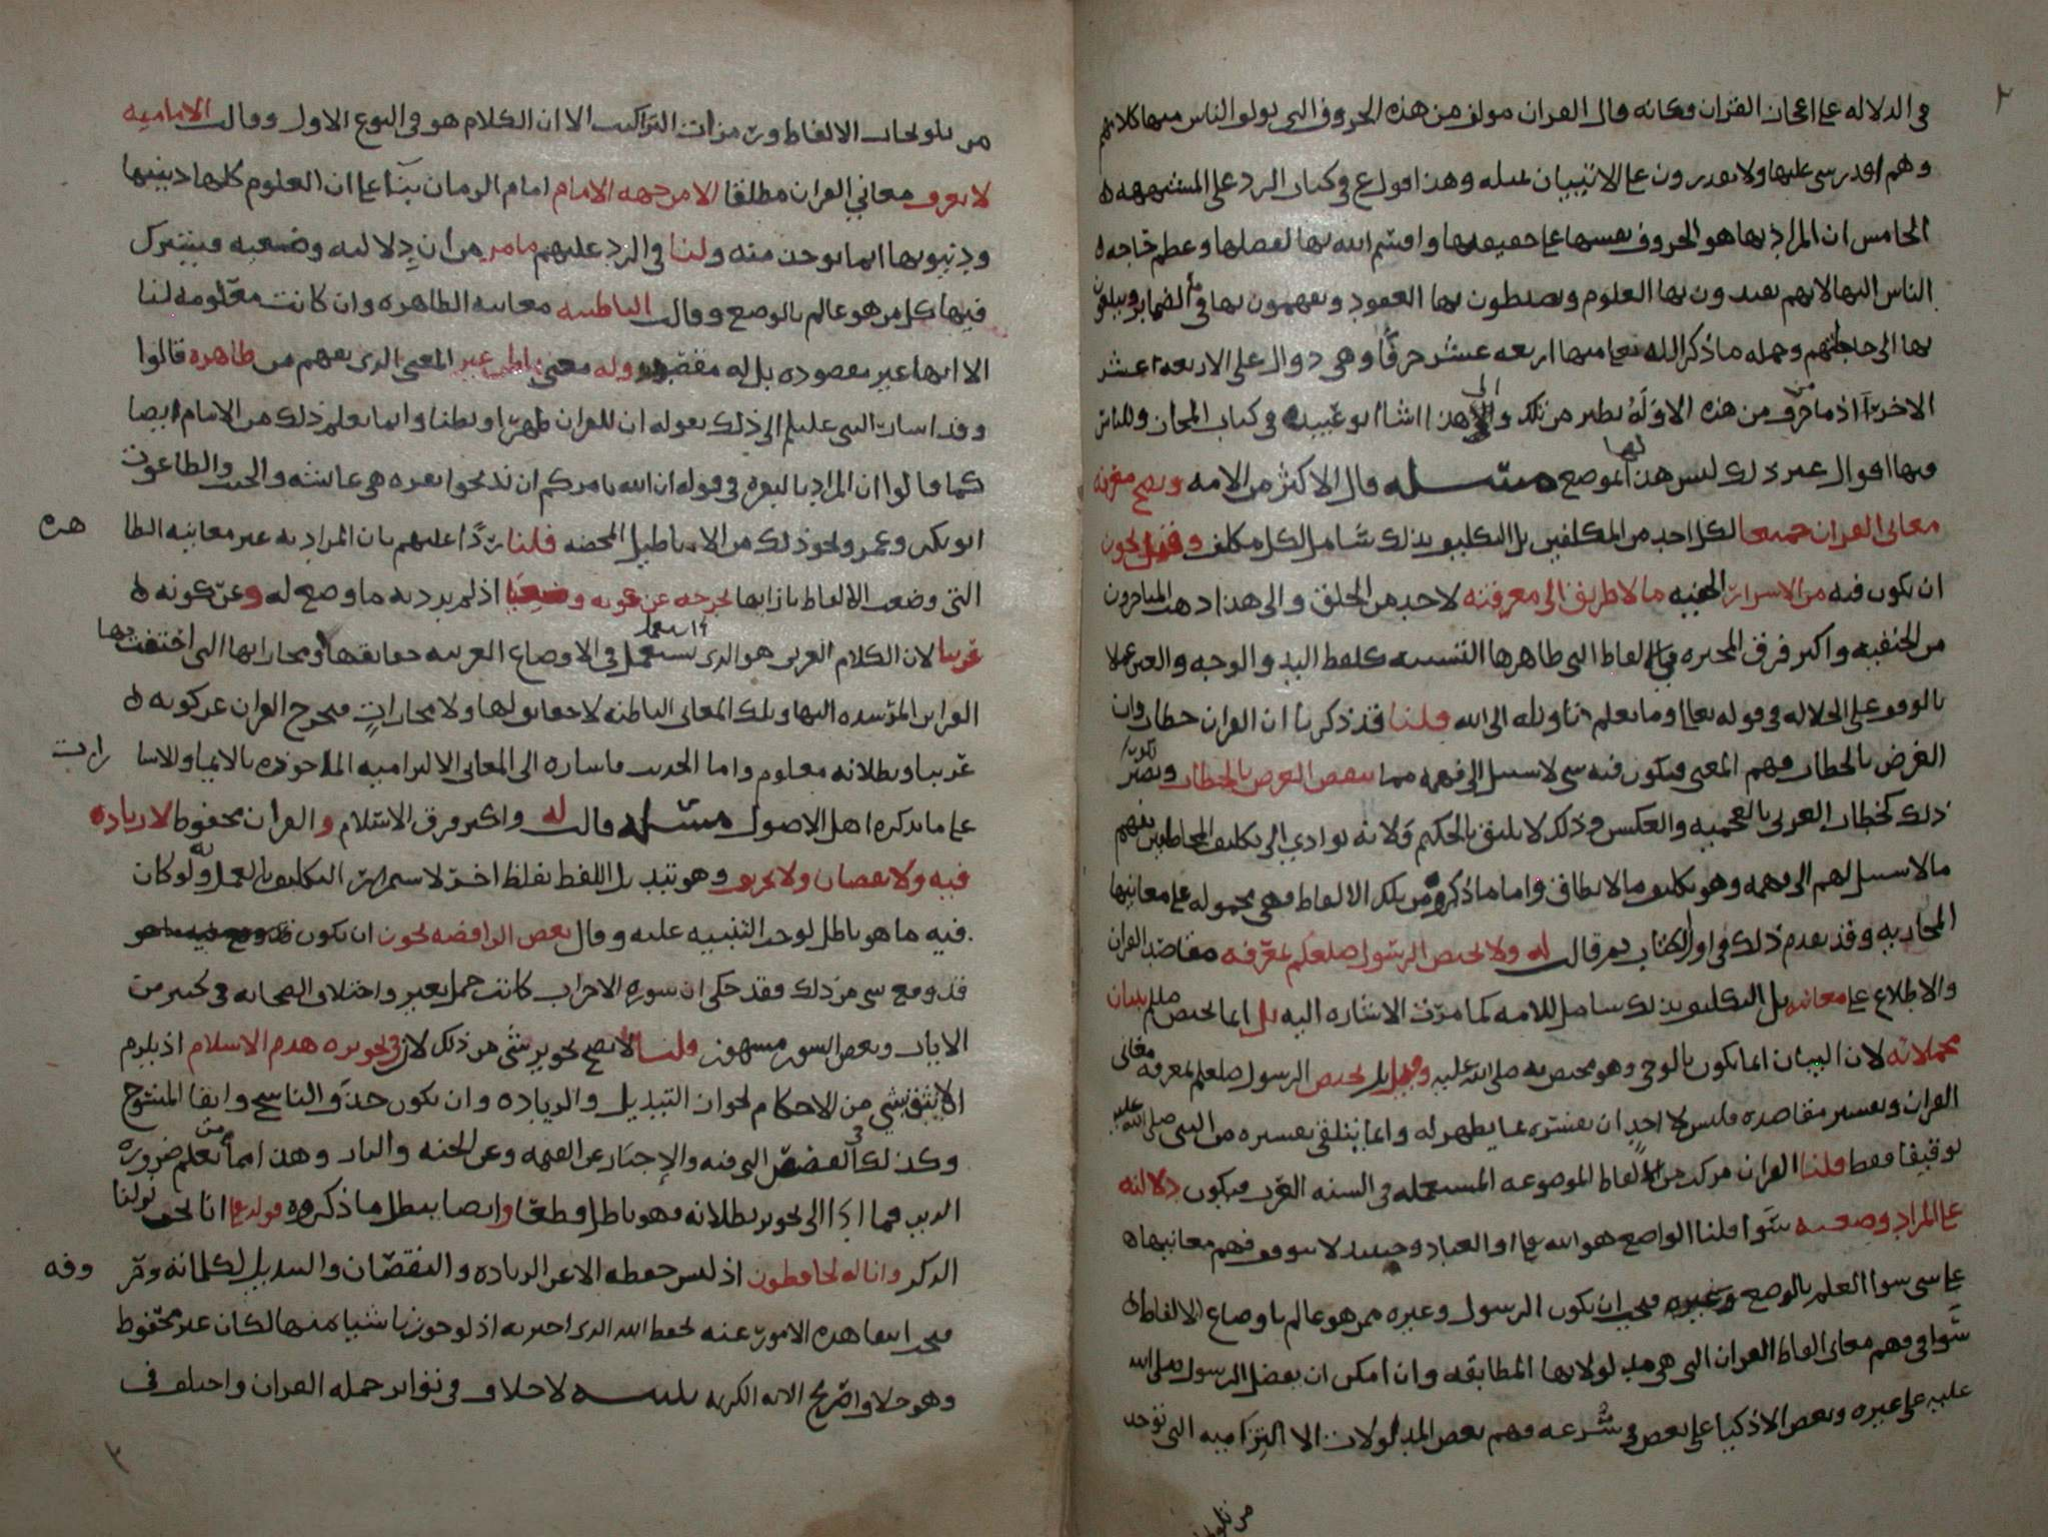 في الدلاله على اعجاز القران فكانه قال القران مولف من هذه الحروف التي يولف الناس منها كلامهم
وهم اقدر شي عليها ولا يقدرون على الاتيان بمثله وهذا اقواع في كتاب الرد على المشبهه
الخامس ان المراد بها هو الحروف نفسها على حقيقتها واقسم الله بها لفضلها وعظم حاجه
الناس اليها لانهم يقيدون بها العلوم ويضبطون بها العقود ويفهمون بها ما في الضماير ويبلغون
بها الى حاجاتهم وجمله ما ذكر الله تعا منها اربعه عشر حرفا وهي دوال على الاربعه عشر
الاخر اذ ما من حرف من هذه الا وله نظير من تلك والى هذا اشار ابو عبيده في كتاب المجاز وللناس
فيها اقوال غير ذلك ليس هذا لها موضع مسئله قال الاكثر من الامه ويصح معرفه
معاني القران جميعها لكل احد من المكلفين بل التكليف بذلك شامل لكل مكلف وقيل يجوز
ان يكون فيه من الاسرار الخفيه ما لا طريق الى معرفته لاحد من الخلق والى هذا ذهب المتاخرون
من الحنفيه واكثر فرق المجبره في الالفاظ التي ظاهرها التشبيه كلفظ اليد والوجه والعين عملا
بالوقف على الجلاله في قوله تعا وما يعلم تاويله الا الله قلنا قد ذكرنا ان القران خطاب وان
الغرض بالخطاب فهم المعنى فيكون فيه شي لا سبيل الى فهمه مما ينقض الغرض بالخطاب ويصير
ذلك كخطاب العربي بالعجميه والعكس وذلك لا يليق بالحكيم ولانه يوادي الى تكليف المخاطبين بفهم
ما لا سبيل لهم الى فهمه وهو تكليف ما لا يطاق واما ما ذكروه من تلك الالفاظ فهي محموله على معانيها
المجازيه وقد تقدم ذلك في اول الكتاب ثم قالت له ولا يختص الرسول صلعلم بمعرفه مقاصد القران
والاطلاع على معانيه بل التكليف بذلك شامل للامه كما مرت الاشاره اليه بل انما يختص صلعم ببيان
مجملاته لان البيان انما يكون بالوحي وهو مختص به صلى الله عليه وقيل بل يختص الرسول صلعلم بمعرفه معاني
القران وتفسير مقاصده فليس لاحد ان يفسره بما يظهر له وانما يتلقى تفسيره من النبي صلى الله عليه
توقيفا فقط قلنا القران مركب من الالفاظ الموضوعه المستعمله في السنه العرب فيكون دلالته
على المراد وضعيه سوا قلنا الواضع هو الله تعا او العباد وحينئذ لا يتوقف فهم معانيها
على شي سوا العلم بالوضع فيجب ان يكون الرسول وغيره ممن هو عالم باوضاع الالفاظ
سوا في فهم معاني الفاظ القران التي هي مدلولاتها المطابقه وان امكن ان يفضل الرسول صلى الله
عليه على غيره وبعض الاذكيا على بعض في سرعه فهم بعض المدلولات الالتزاميه التي توخذ
من تلو
من تلويحات الالفاظ ورمزات التراكيب الا ان الكلام هو في النوع الاول وقالت الاماميه
لا يعرف معاني القران مطلقا الا من جهه الامام امام الزمان بناء على ان العلوم كلها دينيها
ودنيويها انما يوخذ منه ولنا في الرد عليهم ما مر من ان دلالته وضعيه فيشترك
فيها كل من هو عالم بالوضع وقالت الباطنيه معانيه الظاهره وان كانت معلومه لنا
الا انها غير مقصوده بل له مقصود وله معنى باطن غير المعنى الذي يفهم من ظاهره قالوا
وقد اشار النبي عليلم الى ذلك بقوله ان للقران ظهرا وبطنا وانما يعلم ذلك من الامام ايضا
كما قالوا ان المراد بالبقره في قوله ان الله يامركم ان تذبحوا بقره هي عايشه والجبت والطاغوت
ابو بكر وعمر ونحو ذلك من الاباطيل المحضه قلنا ردا عليهم بان المراد به غير معانيه الظا
هره
التي وضعت الالفاظ بازايها يخرجه عن كونه وضعيا اذ لم يرد به ما وضع له وعن كونه
عربيا لان الكلام العربي هو الذي يستعمل في الاوضاع العربيه حقايقها ومجازاتها التي اختفت بها
القراين المرشده اليها وتلك المعاني الباطنه لا حقايق لها ولا مجازات فيخرج القران عن كونه
عربيا وبطلانه معلوم واما الحديث فاشاره الى المعاني الالتزاميه الماخوذه بالايما والاشا
رات
على ما يذكره اهل الاصول مسئله قالت له واكثر فرق الاسلام والقران محفوظ لا زياده
فيه ولا نقصان ولا تحريف وهو تبديل اللفظ بلفظ اخر لاستمرار التكليف بالعمل به ولو كان
فيه ما هو باطل لوجب التنبيه عليه وقال بعض الرافضه يجوز ان يكون
قد وقع شي من ذلك فقد حكي ان سوره الاحزاب كانت حمل بعير واختلاف الصحابه في كثير من
الايات وبعض السور مشهور قلنا لا يصح تجويز شي من ذلك لان في تجويزه هدم الاسلام اذ يلزم
الا يثق بشي من الاحكام لجواز التبديل والزياده وان يكون حذف الناسخ وابقا المنسوخ
وكذلك القصص التي فيه والاخبار عن القيمه وعن الجنه والنار وهذا مما نعلم من ضروره
الدين فما ادا الى تجويز بطلانه فهو باطل قطعا وايضا يبطل ما ذكروه قوله تعا انا نحن نزلنا
الذكر وانا له لحافظون اذ ليس حفظه الا عن الزياده والنقصان والتبديل لكلماته وحر
وفه
فيجب انتفا هذه الامور عنه لحفظ الله الذي اخبر به اذ لو جوزنا شيا منها لكان غير محفوظ
وهو خلاف تصريح الايه الكريمه تنبيه لا خلاف في تواتر جمله القران واختلف في